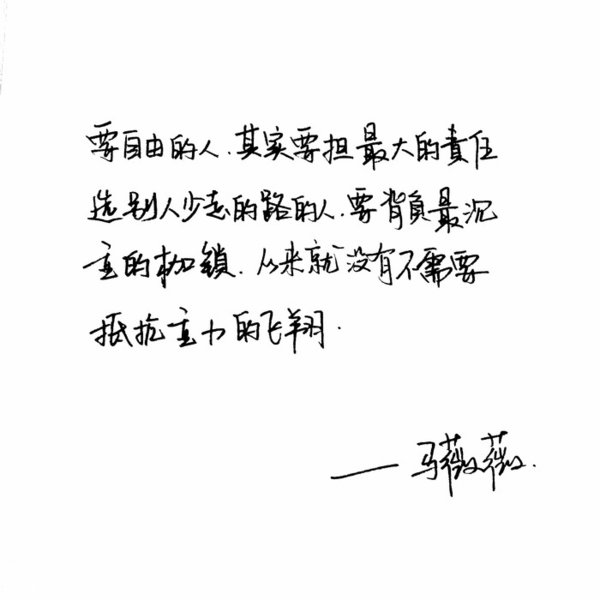 要自由的人.其实要担最大的責任
选别人少走的路的人.要背負最沉
重的枷鎖.从来就没有不需要
抵抗重力的飞翔.
——马薇薇.